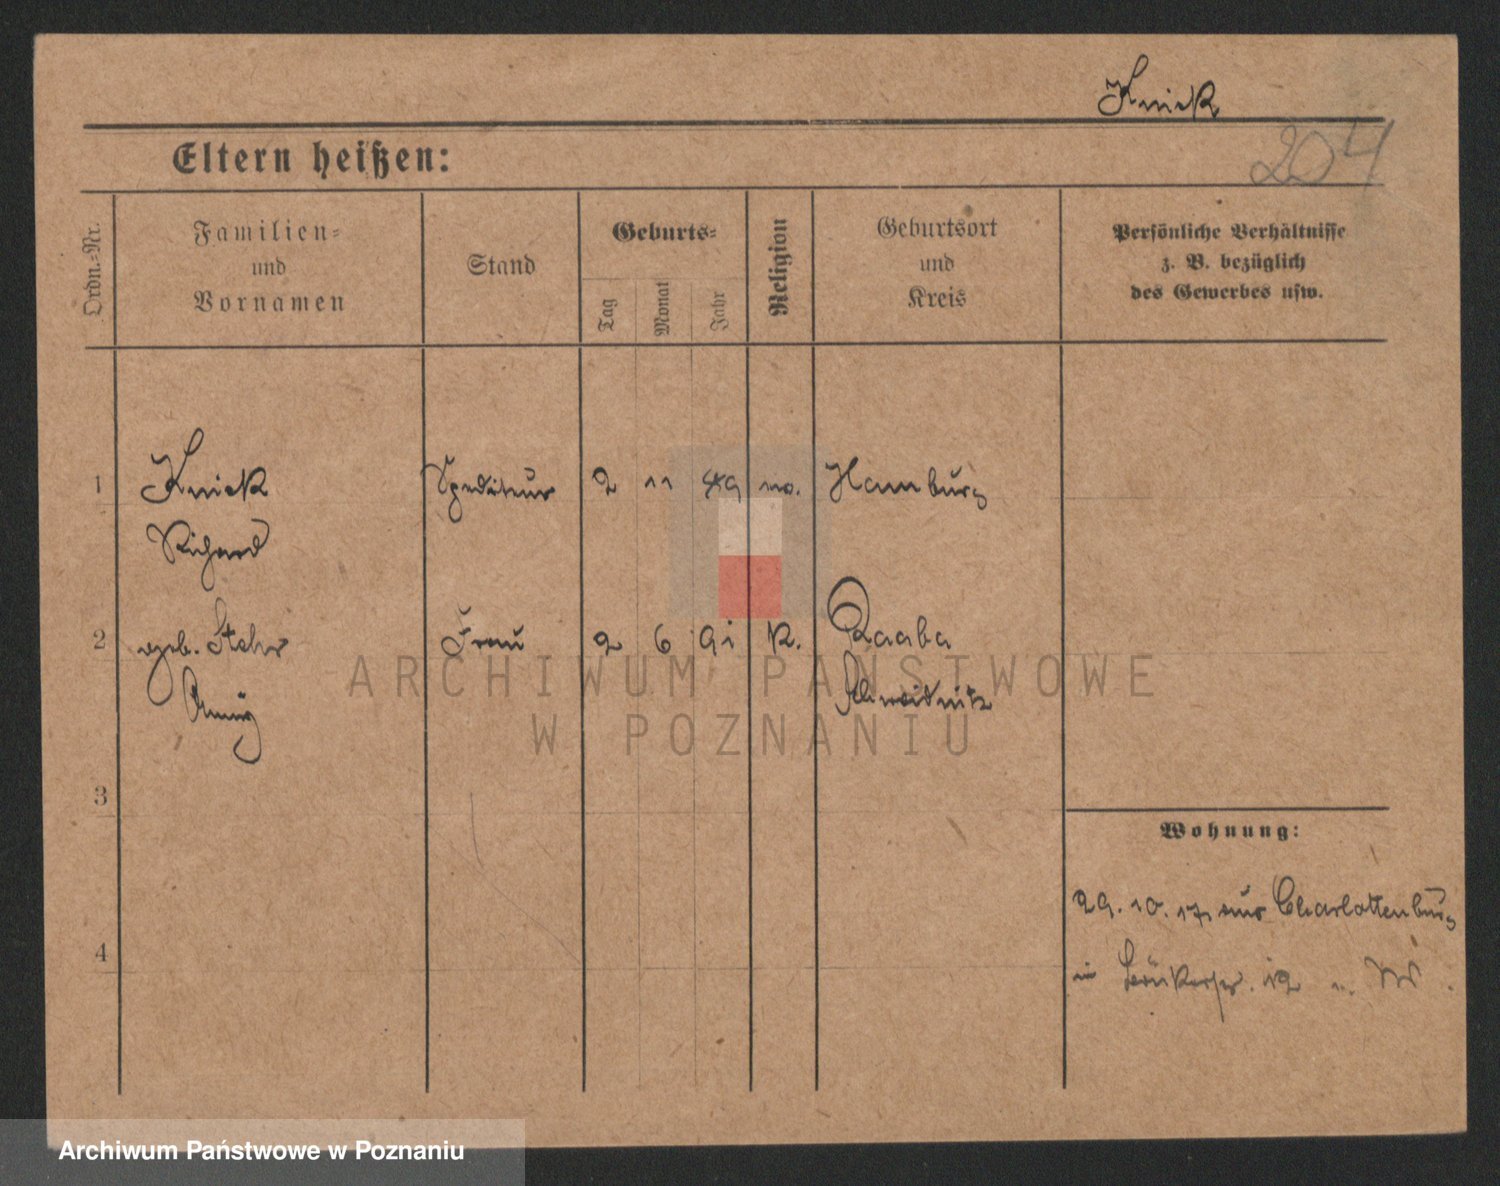 Knick
204
Eltern heißen:
Ordn.-Nr.
Familien-
und
Vornamen
Stand
Geburts-
Tag
Monat
Jahr
Religion
Geburtsort
und
Kreis
Persönliche Verhältnisse
z. B. bezüglich
des Gewerbes usw.
1 Knick Spediteur 2 11 89 Hamburg
Richard
2 geb. Stehr Frau 2 6 91 K. Raaba
Schweidnitz
3
4
Wohnung:
29. 10. 17 aus Charlottenburg
in 12
ARCHIWUM PAŃSTWOWE
W POZNANIU
Archiwum Państwowe w Poznaniu